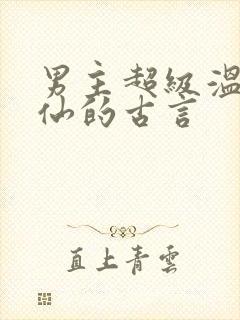 男主超级温
仙的古言
直上青雲